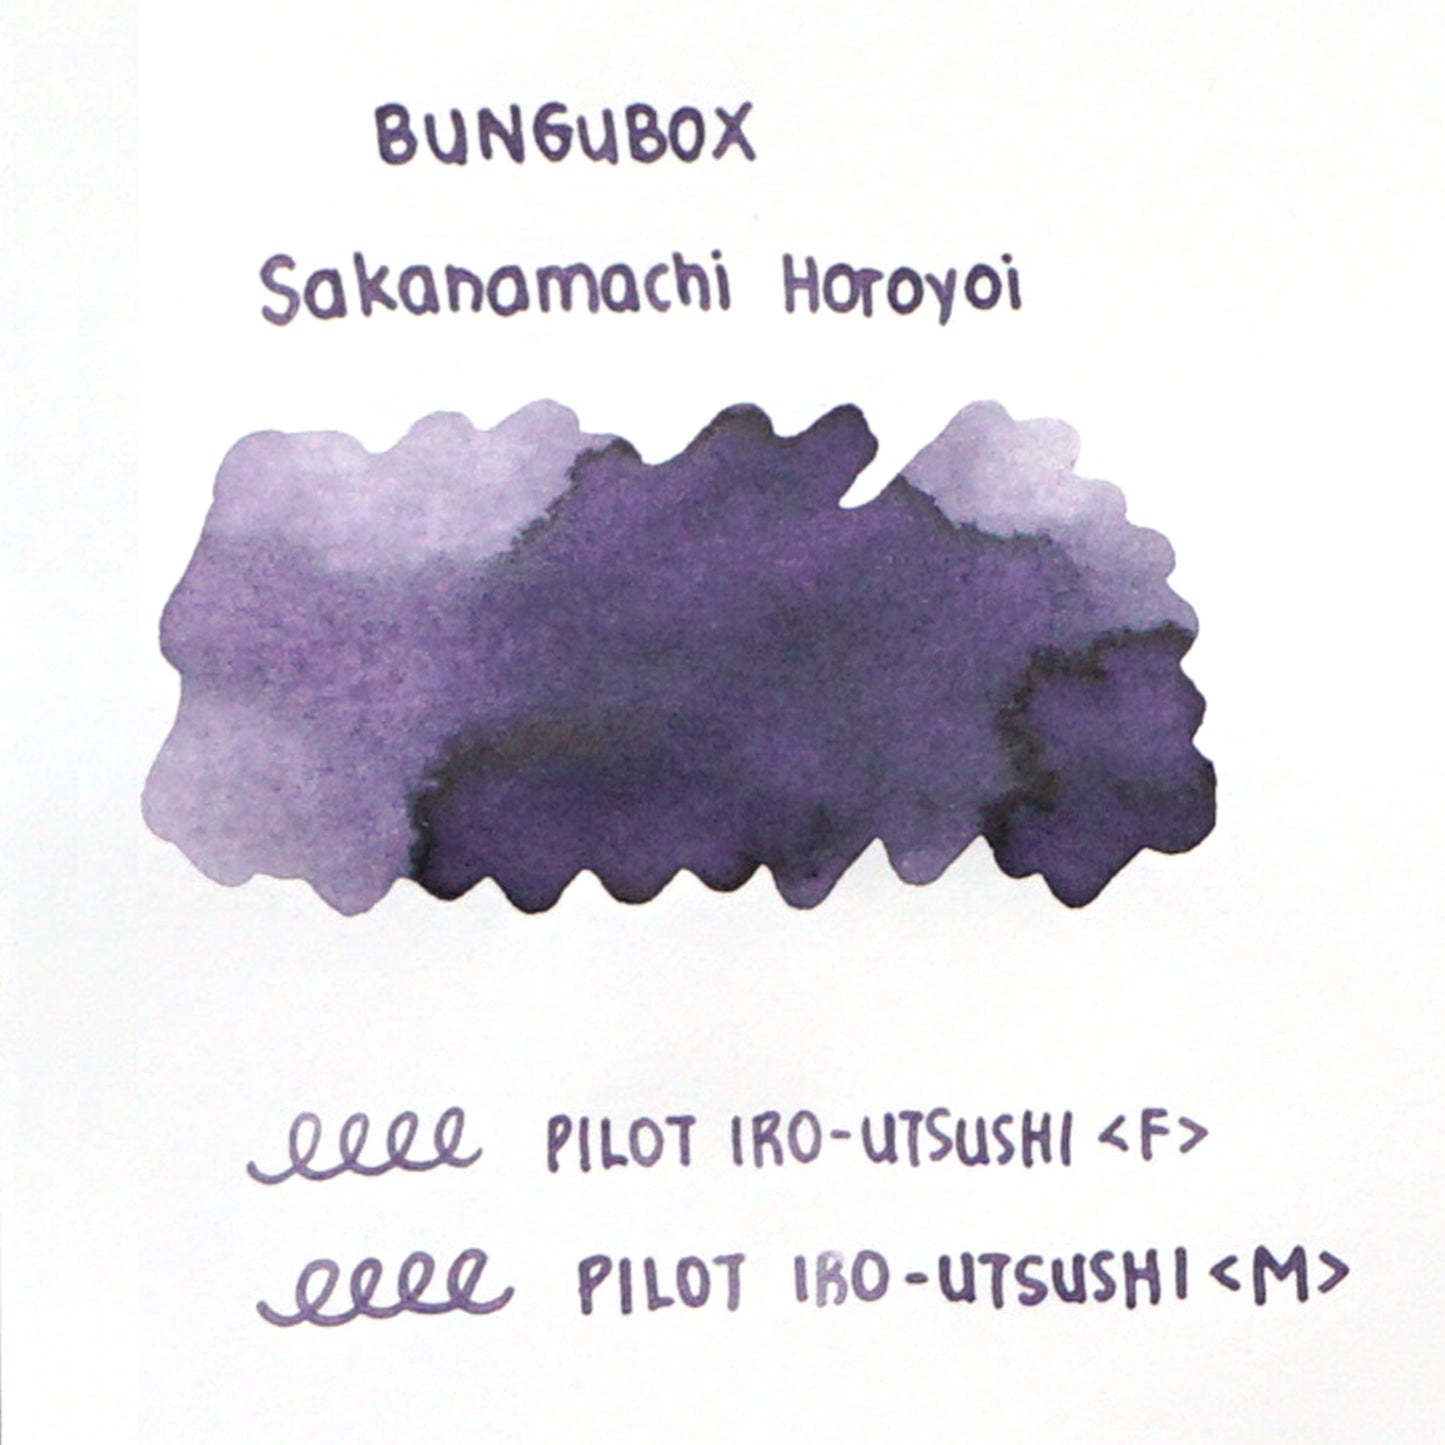 BUNGUBOX
Sakanamachi Horoyoi
PILOT IRO-UTSUSHI <F>
PILOT IRO-UTSUSHI <M>